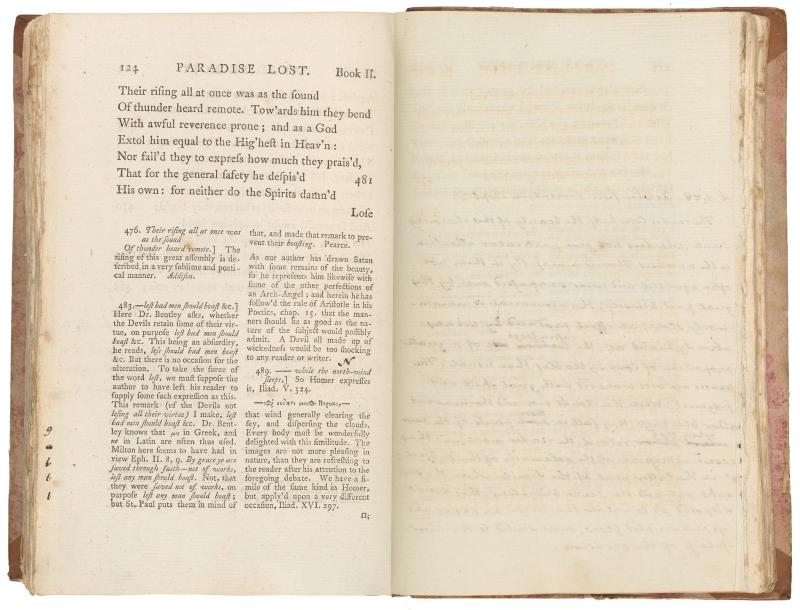 124 PARADISE LOST. Book II.
Their riſing all at once was as the ſound
Of thunder heard remote. Tow'ards him they bend
With awful reverence prone; and as a God
Extol him equal to the Hig'heſt in Heav'n:
Nor fail'd they to expreſs how much they prais'd,
That for the general ſafety he deſpis'd 481
His own: for neither do the Spirits damn'd
Loſe
476. Their riſing all at once was
as the ſound
Of thunder heard remote.] The
riſing of this great aſſembly is de-
ſcribed in a very ſublime and poeti-
cal manner. Addiſon.
483.—leſt bad men ſhould boaſt &c.]
Here Dr. Bentley aſks, whether
the Devils retain ſome of their vir-
tue, on purpoſe leſt bad men ſhould
boaſt &c. This being an abſurdity,
he reads, leſs ſhould bad men boaſt
&c. But there is no occaſion for the
alteration. To take the force of
the word leſt, we muſt ſuppoſe the
author to have left his reader to
ſupply ſome ſuch expreſſion as this.
This remark (of the Devils not
loſing all their virtue) I make, leſt
bad men ſhould boaſt &c. Dr. Bent-
ley knows that μη in Greek, and
ne in Latin are often thus uſed.
Milton here ſeems to have had in
view Eph. II. 8, 9. By grace ye are
ſaved through faith—not of works,
leſt any man ſhould boaſt. Not, that
they were ſaved not of works, on
purpoſe leſt any man ſhould boaſt;
but St. Paul puts them in mind of
that, and made that remark to pre-
vent their boaſting. Pearce.
As our author has drawn Satan
with ſome remains of the beauty,
ſo he repreſents him likewiſe with
ſome of the other perfections of
an Arch-Angel; and herein he has
follow'd the rule of Ariſtotle in his
Poetics, chap. 15. that the man-
ners ſhould be as good as the na-
ture of the ſubject would poſſibly
admit. A Devil all made up of
wickedneſs would be too ſhocking
to any reader or writer.
N
489. —— while the north-wind
ſleeps,] So Homer expreſſes
it, Iliad. V. 524.
that wind generally clearing the
ſky, and diſperſing the clouds.
Every body muſt be wonderfully
delighted with this ſimilitude. The
images are not more pleaſing in
nature, than they are refreſhing to
the reader after his attention to the
foregoing debate. We have a ſi-
mile of the ſame kind in Homer,
but apply'd upon a very different
occaſion, Iliad. XVI. 297.